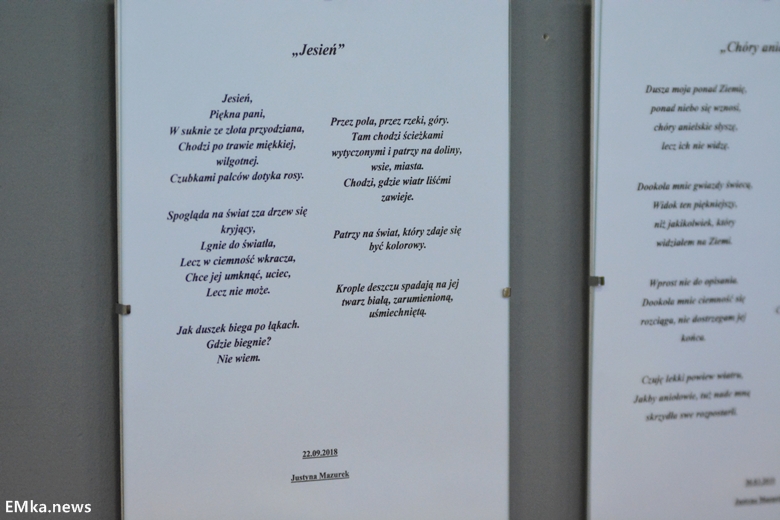 „Jesień”
Jesień,
Piękna pani,
W suknie ze złota przyodziana,
Chodzi po trawie miękkiej,
wilgotnej.
Czubkami palców dotyka rosy.
Spogląda na świat zza drzew się
kryjący,
Lgnie do światła,
Lecz w ciemność wkracza,
Chce jej umknąć, uciec,
Lecz nie może.
Jak duszek biega po łąkach.
Gdzie biegnie?
Nie wiem.
Przez pola, przez rzeki, góry.
Tam chodzi ścieżkami
wytyczonymi i patrzy na doliny,
wsie, miasta.
Chodzi, gdzie wiatr liśćmi
zawieje.
Patrzy na świat, który zdaje się
być kolorowy.
Krople deszczu spadają na jej
twarz białą, zarumienioną,
uśmiechniętą.
22.09.2018
Justyna Mazurek
„Chóry
Dusza moja ponad Ziemię,
ponad niebo się wznosi,
chóry anielskie słyszę,
lecz ich nie widzę.
Dookoła mnie gwiazdy świecą,
Widok ten piękniejszy,
niż jakikolwiek, który
widziałem na Ziemi.
Wprost nie do opisania.
Dookoła mnie ciemność się
rozciąga, nie dostrzegam jej
końca.
Czuję lekki powiew wiatru,
Jakby aniołowie, tuż nade mną
skrzydła swe rozpostarli.
Justyna
EMka.news